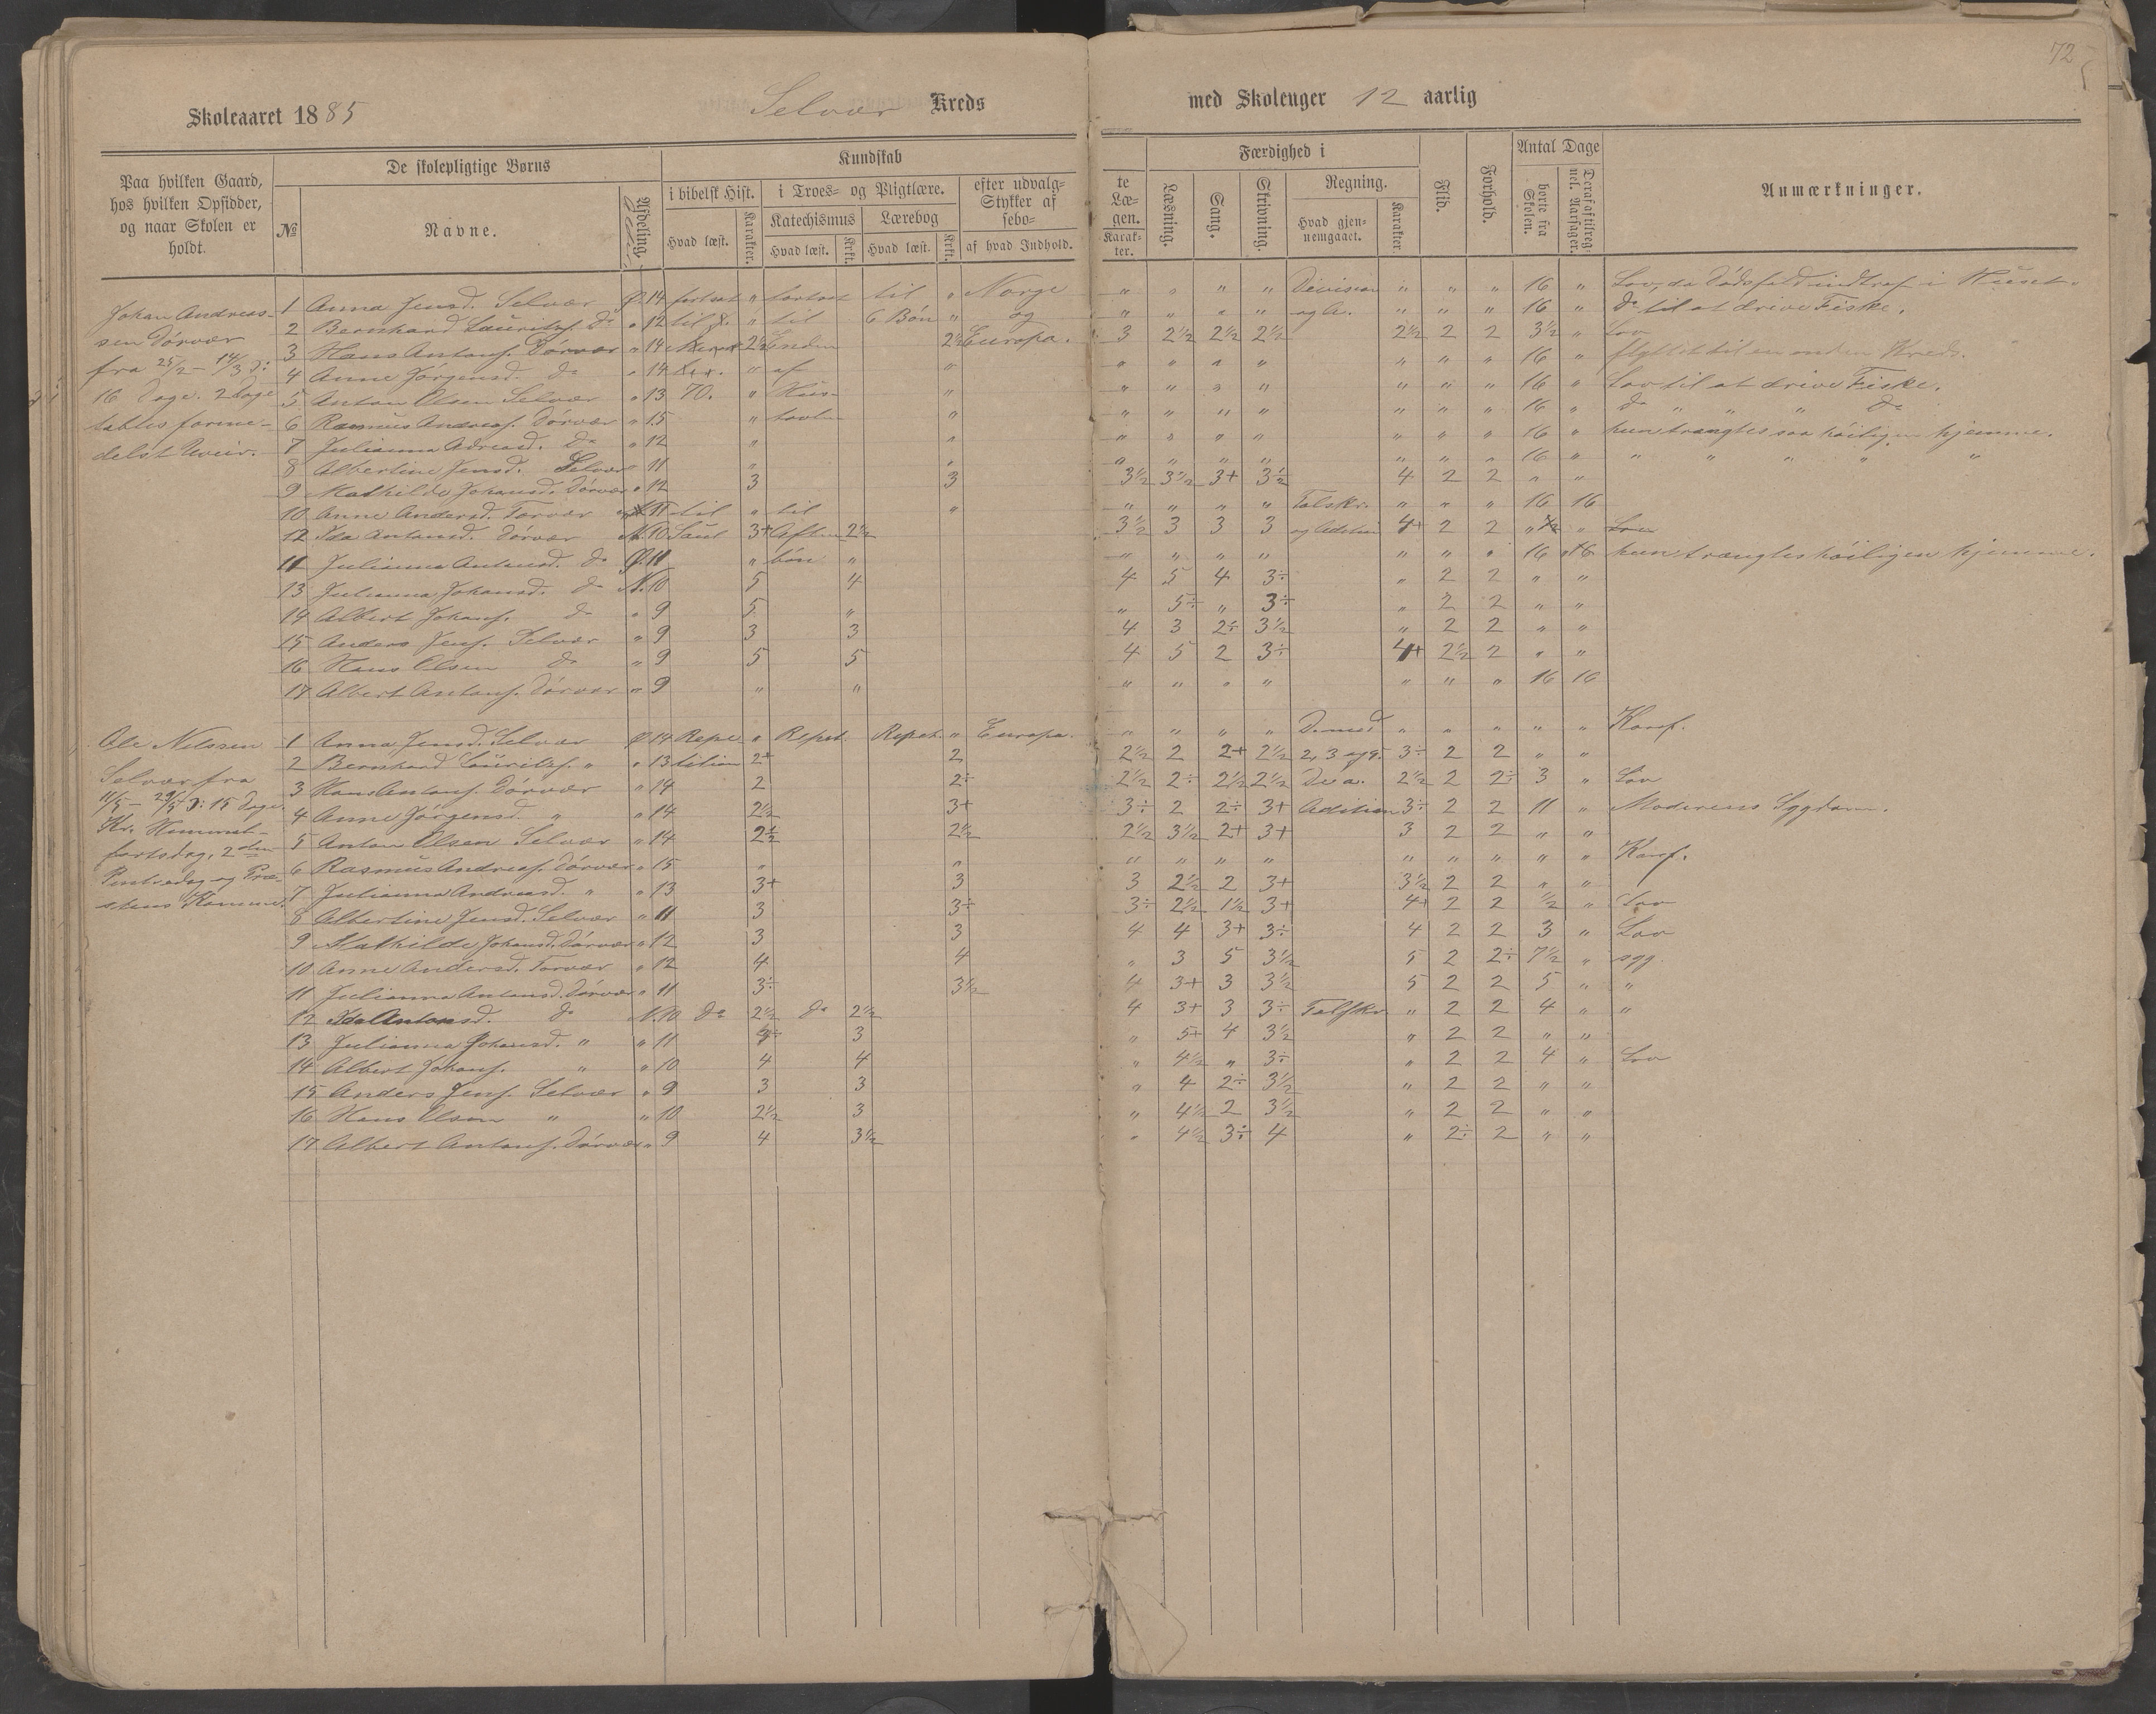 72
Skoleaaret 1885 Selvær Kreds med Skoleuger 12 aarlig
Paa hvilken Gaard, hos hvilken Opsidder, og naar Skolen er holdt.
De skolepligtige Børns
№ Navne. Afdeling.
Kundskab
i bibelsk Hist. i Troes- og Pligtlære. efter udvalg-te Stykker af Læ-sebo-gen.
Katechismus Lærebog
Hvad læst. Karakter. Hvad læst. Krkt. Hvad læst. Krkt. af hvad Indhold. Karak-ter.
Færdighed i
Læsning. Sang. Skrivning. Regning.
Hvad gjen-nemgaaet. Karakter.
Flid. Forhold.
Antal Dage
borte fra Skolen. Deraf af tilreg-nel. Aarsager.
Anmærkninger.
Johan Andreas-
sen Dørvær
fra 25/2 – 14/3 d:
16 Dage. 2 Dage
tabtes forme-
delst Uveir.
1 Anna Jensd. Selvær Ø. 14 fortsat " fortsat til " Norge " " " " Division " " " 16 " Lov, da Dødsfald indtraf i Huset.
2 Bernhard Lauritzs. do " 12 til " til 6 Bøn " og " " " " og A. " " " 16 " do til at drive Fiske.
3 Hans Antons. Dørvær " 14 2½ Enden 2½ Europa. 3 2½ 2½ 2½ 2½ 2 2 3½ " Lov
4 Anne Jørgensd. do " 14 " af " " " " " " " " 16 " flyttet til en anden Kreds.
5 Anton Olsen Selvær " 13 70. " Hus- " " " " " " " " 16 " Lov til at drive Fiske.
6 Rasmus Andreas. Dørvær " 15 " tavlen " " " " " " " " 16 " do " " " do
7 Julianna Adreasd. do " 12 " " " " " " " " " 16 " hun trængtes saa høiligen hjemme.
8 Albertine Jensd. Selvær " 11 " " " " " " " " " 16 " " " " " "
9 Mathilde Johansd. Dørvær " 12 3 3 3½ 3½ 3+ 3½ 4 2 2 " "
10 Anne Andersd. Torvær " 11 til " til " " " " " Talskr. " " " 16 16
12 Ida Antonsd. Dørvær N. 10 Saul 3+ Aften 2½ 3½ 3 3 3 og Adition 4+ 2 2 " "
11 Julianna Antonsd. do Ø. 11 " bøn " " " " " " " " 16 16 hun trængtes høiligen hjemme.
13 Julianna Johansd. do N. 10 5 4 4 5 4 3÷ " 2 2 " "
14 Albert Johans. do " 9 5 " " 5÷ " 3÷ " 2 2 " "
15 Anders Jens. Selvær " 9 3 3 4 3 2÷ 3½ " 2 2 " "
16 Hans Olsen do " 9 5 5 4 5 2 3÷ 4+ 2½ 2 " "
17 Albert Antons. Dørvær " 9 " " " " " " " " " 16 16
Ole Nilssen
Selvær fra
11/5 – 29/5 d: 15 Dage.
Kr. Himmel-
fartsdag, 2den
Pintsedag og Præ-
stens Komme.
1 Anna Jensd. Selvær Ø. 14 Repe- " Repet. Repet. " Europa. " " " " D. med " " " " " Konf.
2 Bernhard Lauritzs. " " 13 tition 2+ 2 2½ 2 2+ 2½ 2, 3 og 5. 3÷ 2 2 " "
3 Hans Antons. Dørvær " 14 2 2÷ 2½ 2÷ 2½ 2½ 2½ 2 2÷ 3 " Lov
4 Anne Jørgensd. " " 14 2½ 3+ 3÷ 2 2÷ 3+ Adition 3÷ 2 2 11 " Moderens Sygdom.
5 Anton Olsen Selvær " 14 2½ 2½ 2½ 3½ 2+ 3+ 3 2 2 " "
6 Rasmus Andreas. Dørvær " 15 " " " " " " " " " " " Konf.
7 Julianna Andreasd. " " 13 3+ 3 3 2½ 2 3+ 3½ 2 2 " "
8 Albertine Jensd. Selvær " 11 3 3÷ 3÷ 2½ 1½ 3+ 4+ 2 2 ½ " Lov
9 Mathilde Johansd. Dørvær " 12 3 3 4 4 3+ 3÷ 4 2 2 3 " Lov
10 Anne Andersd. Torvær " 12 4 4 " 3 5 3½ 5 2 2÷ 7½ " syg.
11 Julianna Antonsd. Dørvær " 11 3÷ 3½ 4 3+ 3 3½ 5 2 2 5 " "
12 Ida Antonsd. do N. 10 do 2½ do 2½ 4 3+ 3 3÷ Talskr. " 2 2 4 " "
13 Julianna Johansd. " " 11 3 " 5+ 4 3½ " 2 2 " "
14 Albert Johans. " " 10 4 4 " 4½ " 3÷ " 2 2 4 " Lov
15 Anders Jens. Selvær " 9 3 3 " 4 2÷ 3½ " 2 2 " "
16 Hans Olsen " " 10 2½ 3 " 4½ 2 3½ " 2 2 " "
17 Albert Antons. Dørvær " 9 4 3½ " 4½ 3÷ 4 " 2÷ 2 " "